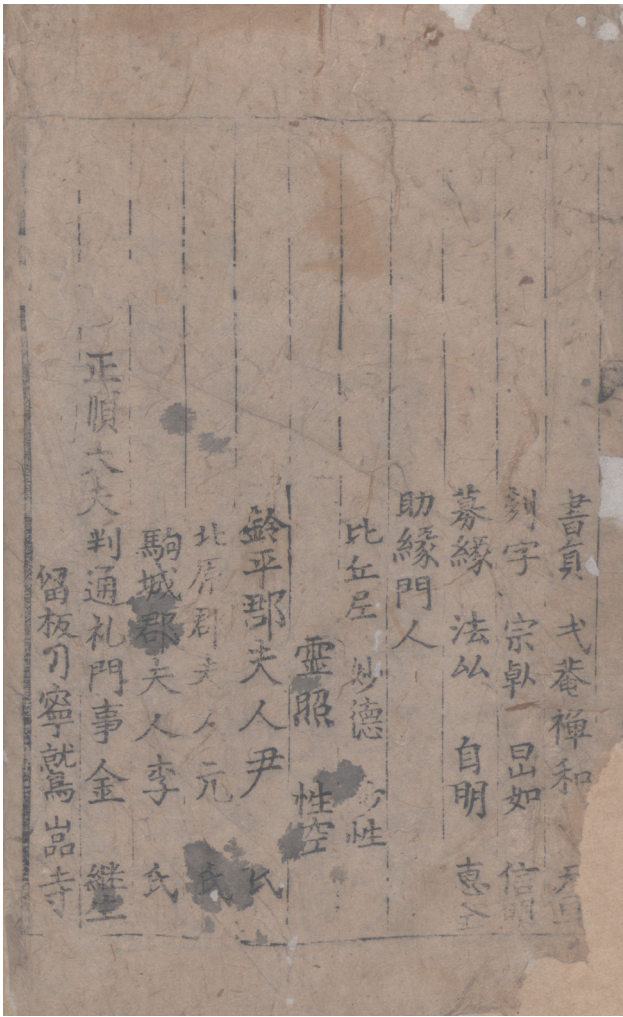 書貟 弌菴禪和 天亘
刻字 宗倬 旵如 信明
募緣 法厸 自明 惠全
助緣門人
比丘尼 妙德 妙性
靈照 性空
鈴平郡夫人尹 氏
北原郡夫人元 氏
駒城郡夫人李 氏
正順大夫判通礼門事金 継生
留板川寧鷲嵓寺